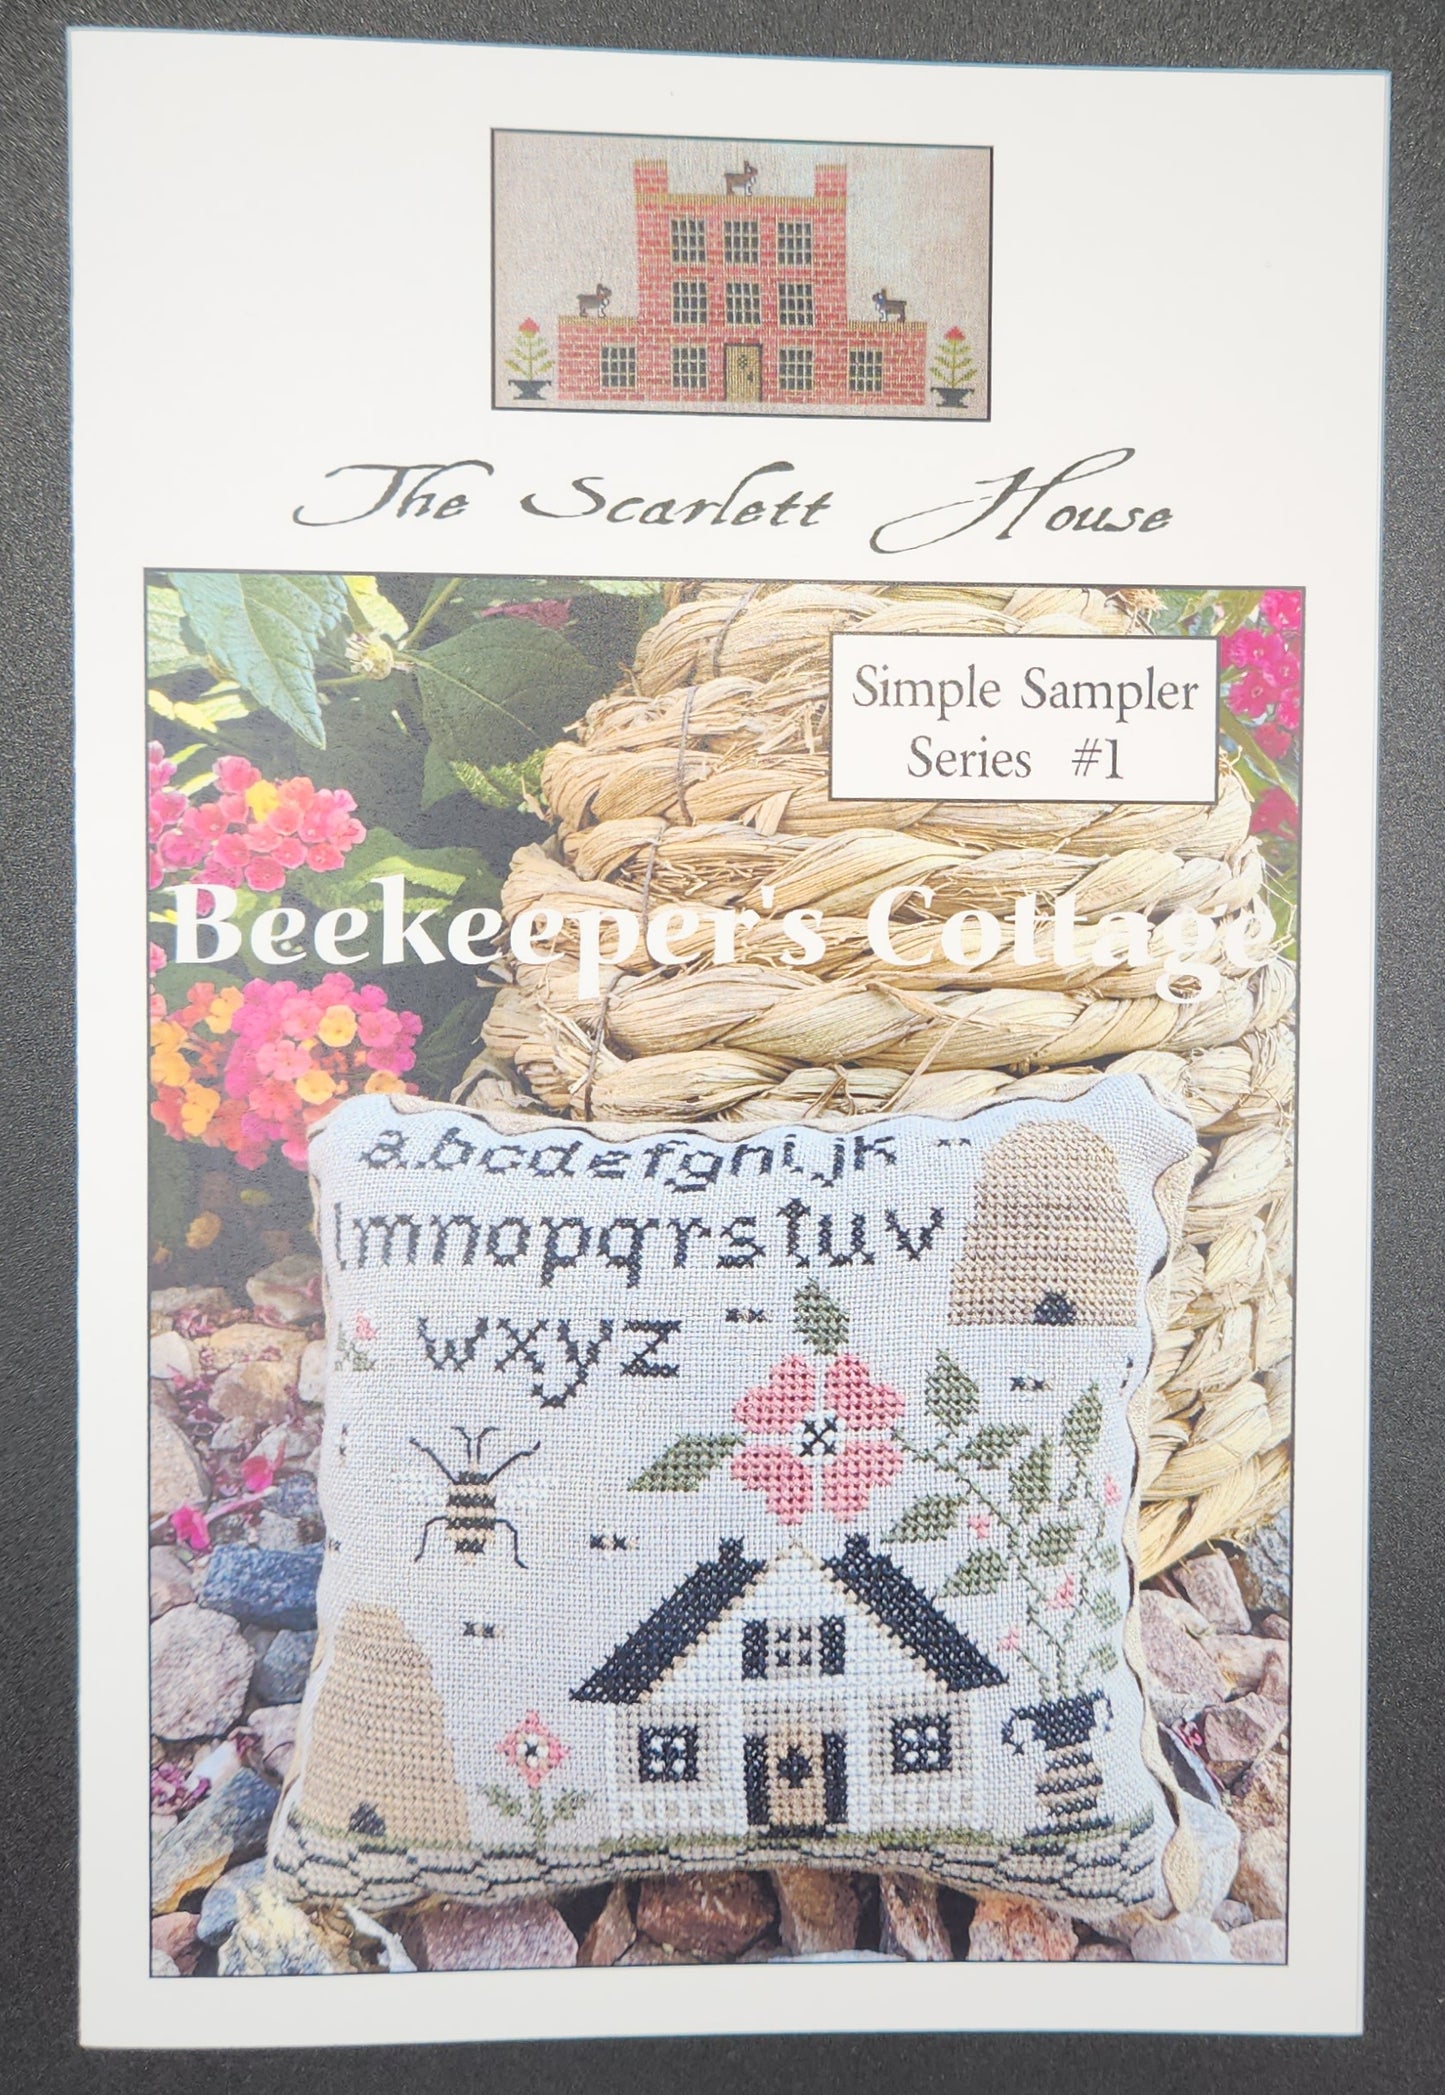 The Scarlett House
Simple Sampler
Series #1
Beekeeper's Cottage
abcdefghijk
lmnopqrstuv
wxyz